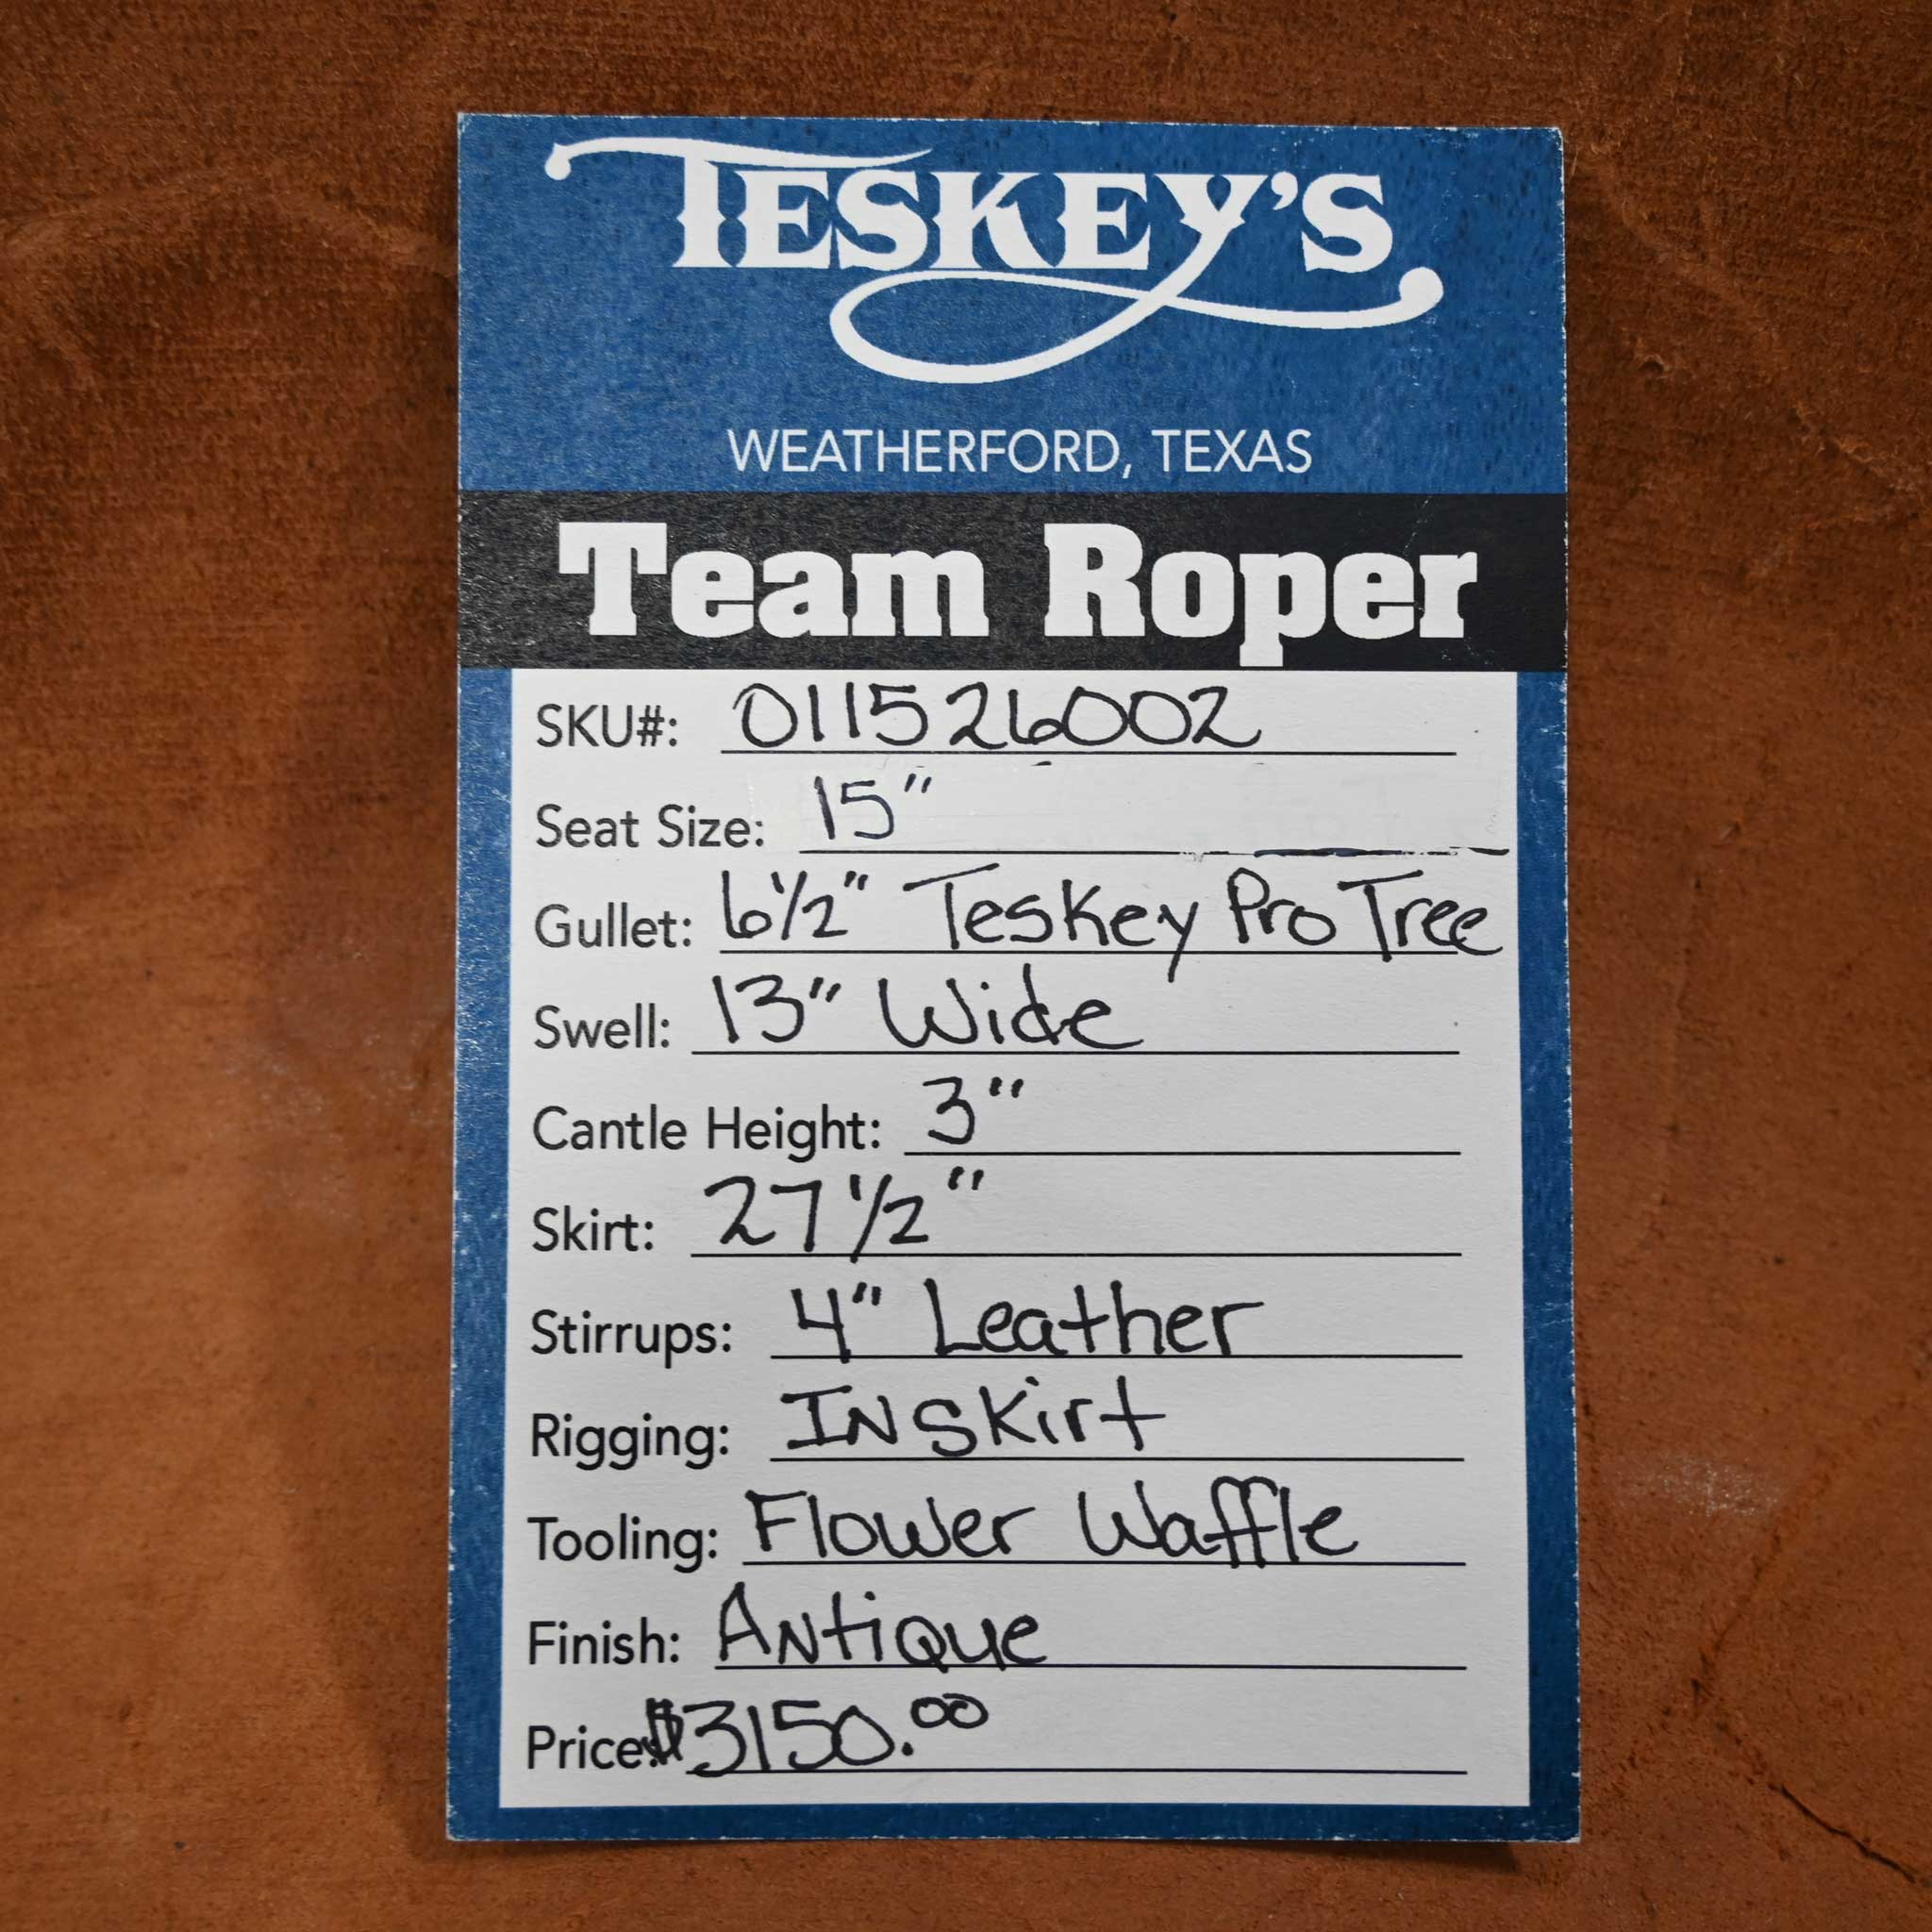 TESKEY'S
WEATHERFORD, TEXAS
Team Roper
SKU#: 011526002
Seat Size: 15"
Gullet: 6½" Teskey Pro Tree
Swell: 13" Wide
Cantle Height: 3"
Skirt: 27 ½"
Stirrups: 4" Leather
Rigging: INSkirt
Tooling: Flower Waffle
Finish: ANtique
Price: $3150.00